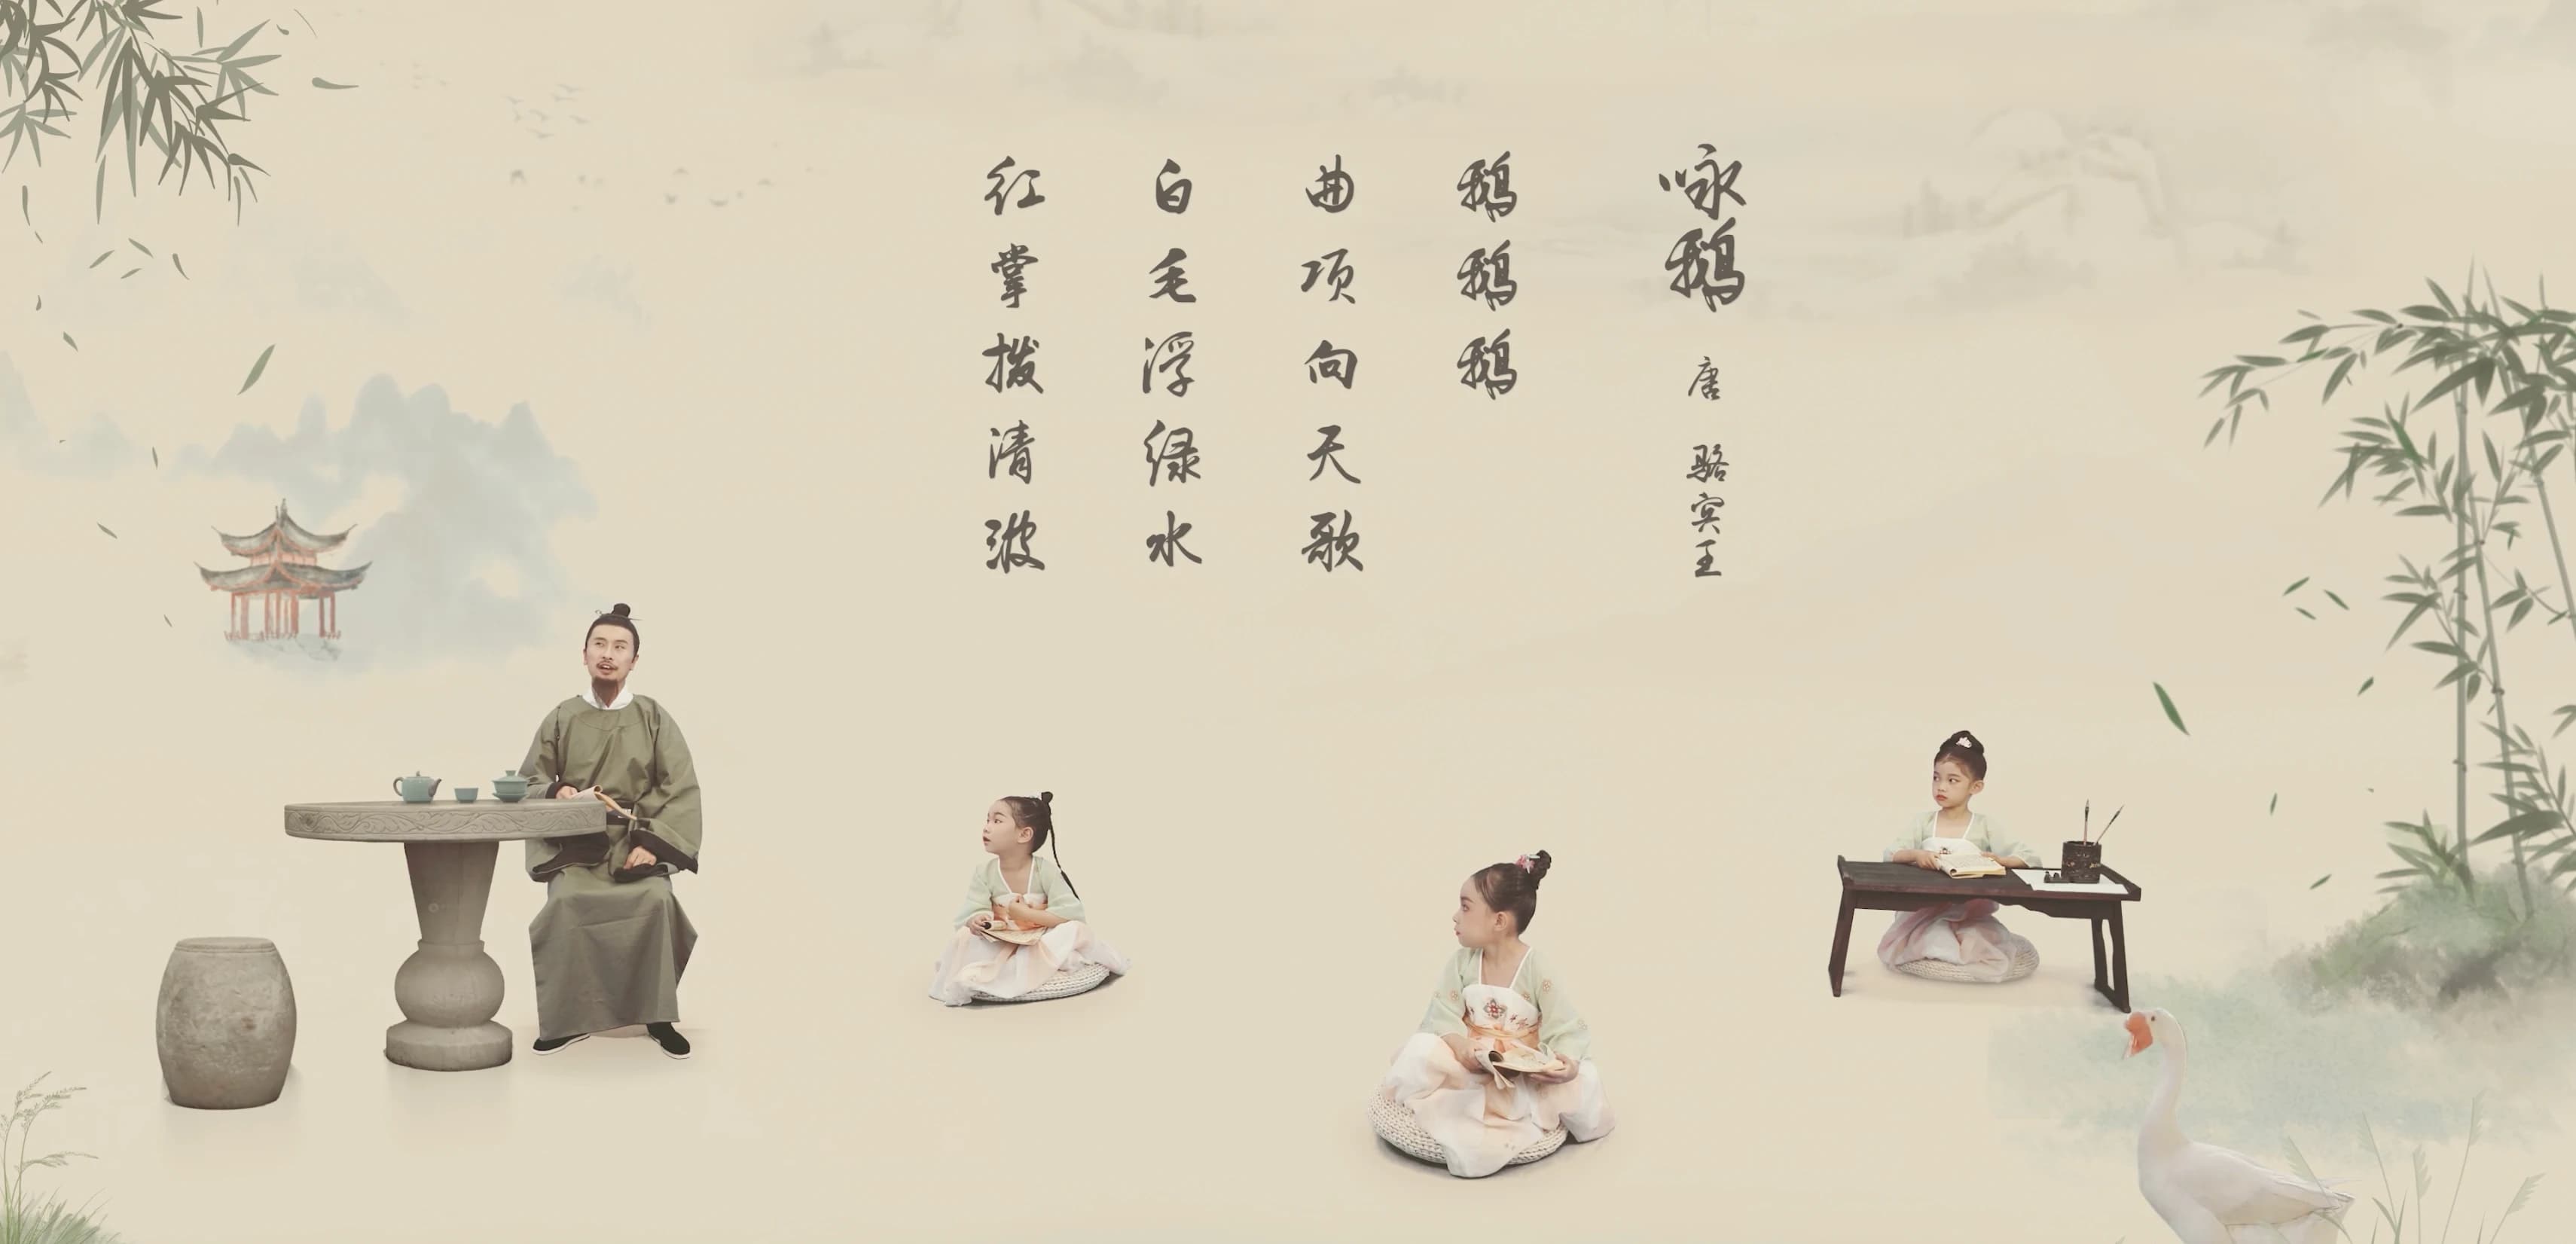 咏鹅
唐 骆宾王
鹅鹅鹅
曲项向天歌
白毛浮绿水
红掌拨清波